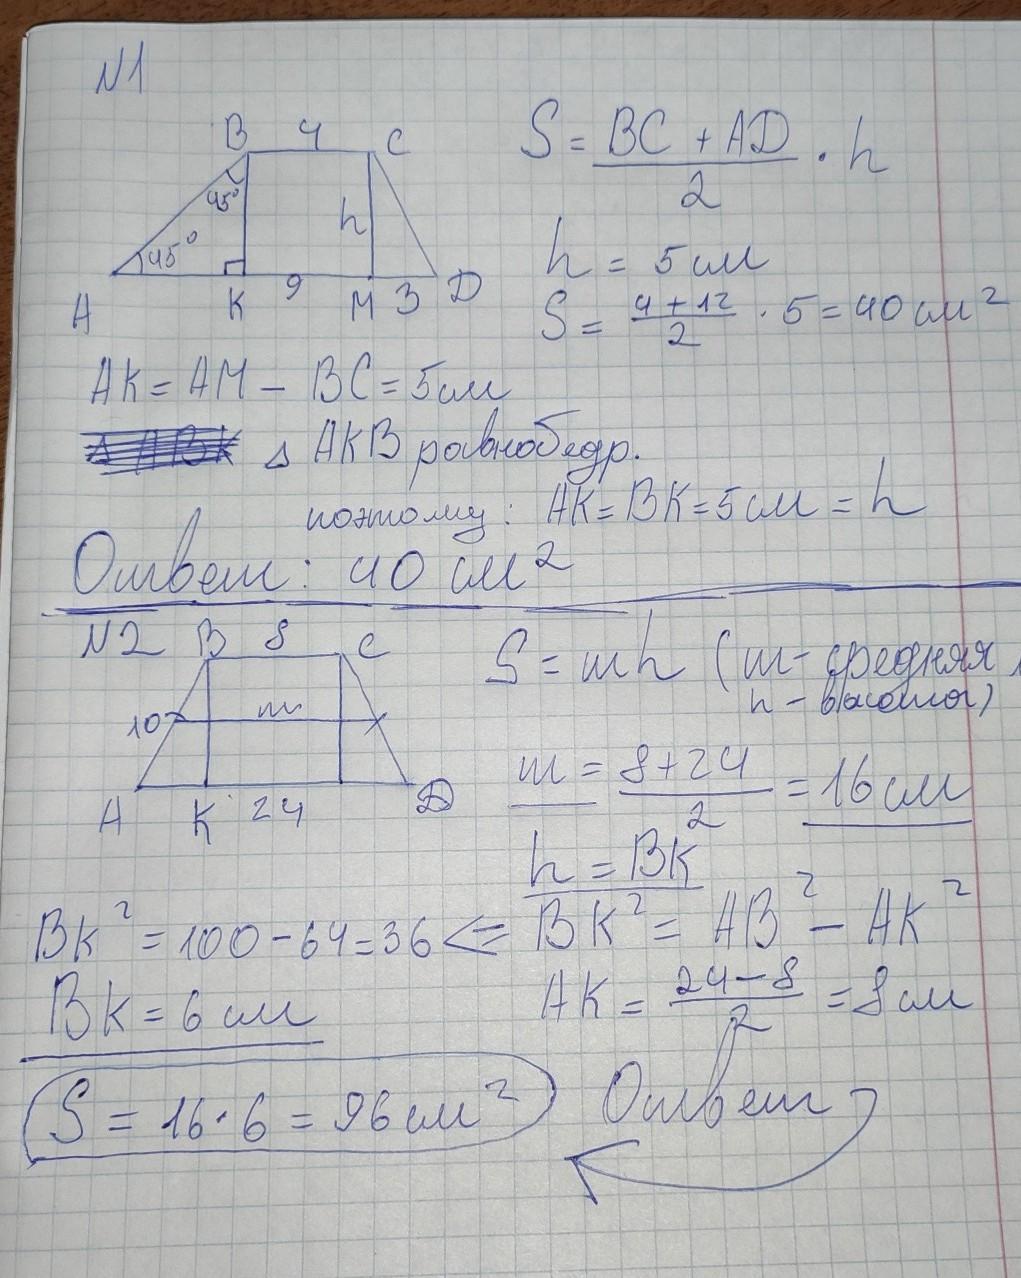 N1
B 4 C
45° h
45°
A K 9 M 3 D
S = BC + AD / 2 · h
h = 5 см
S = 4 + 12 / 2 · 5 = 40 см²
AK = AM - BC = 5 см
△ AKB равнобедр.
поэтому: AK = BK = 5 см = h
Ответ: 40 см²
N2 B 8 C
10 m
A K 24 D
S = mh (m - средняя
h - высота)
m = 8 + 24 / 2 = 16 см
h = BK
BK² = 100 - 64 = 36 <= BK² = AB² - AK²
BK = 6 см
AK = 24 - 8 / 2 = 8 см
S = 16 · 6 = 96 см² Ответ